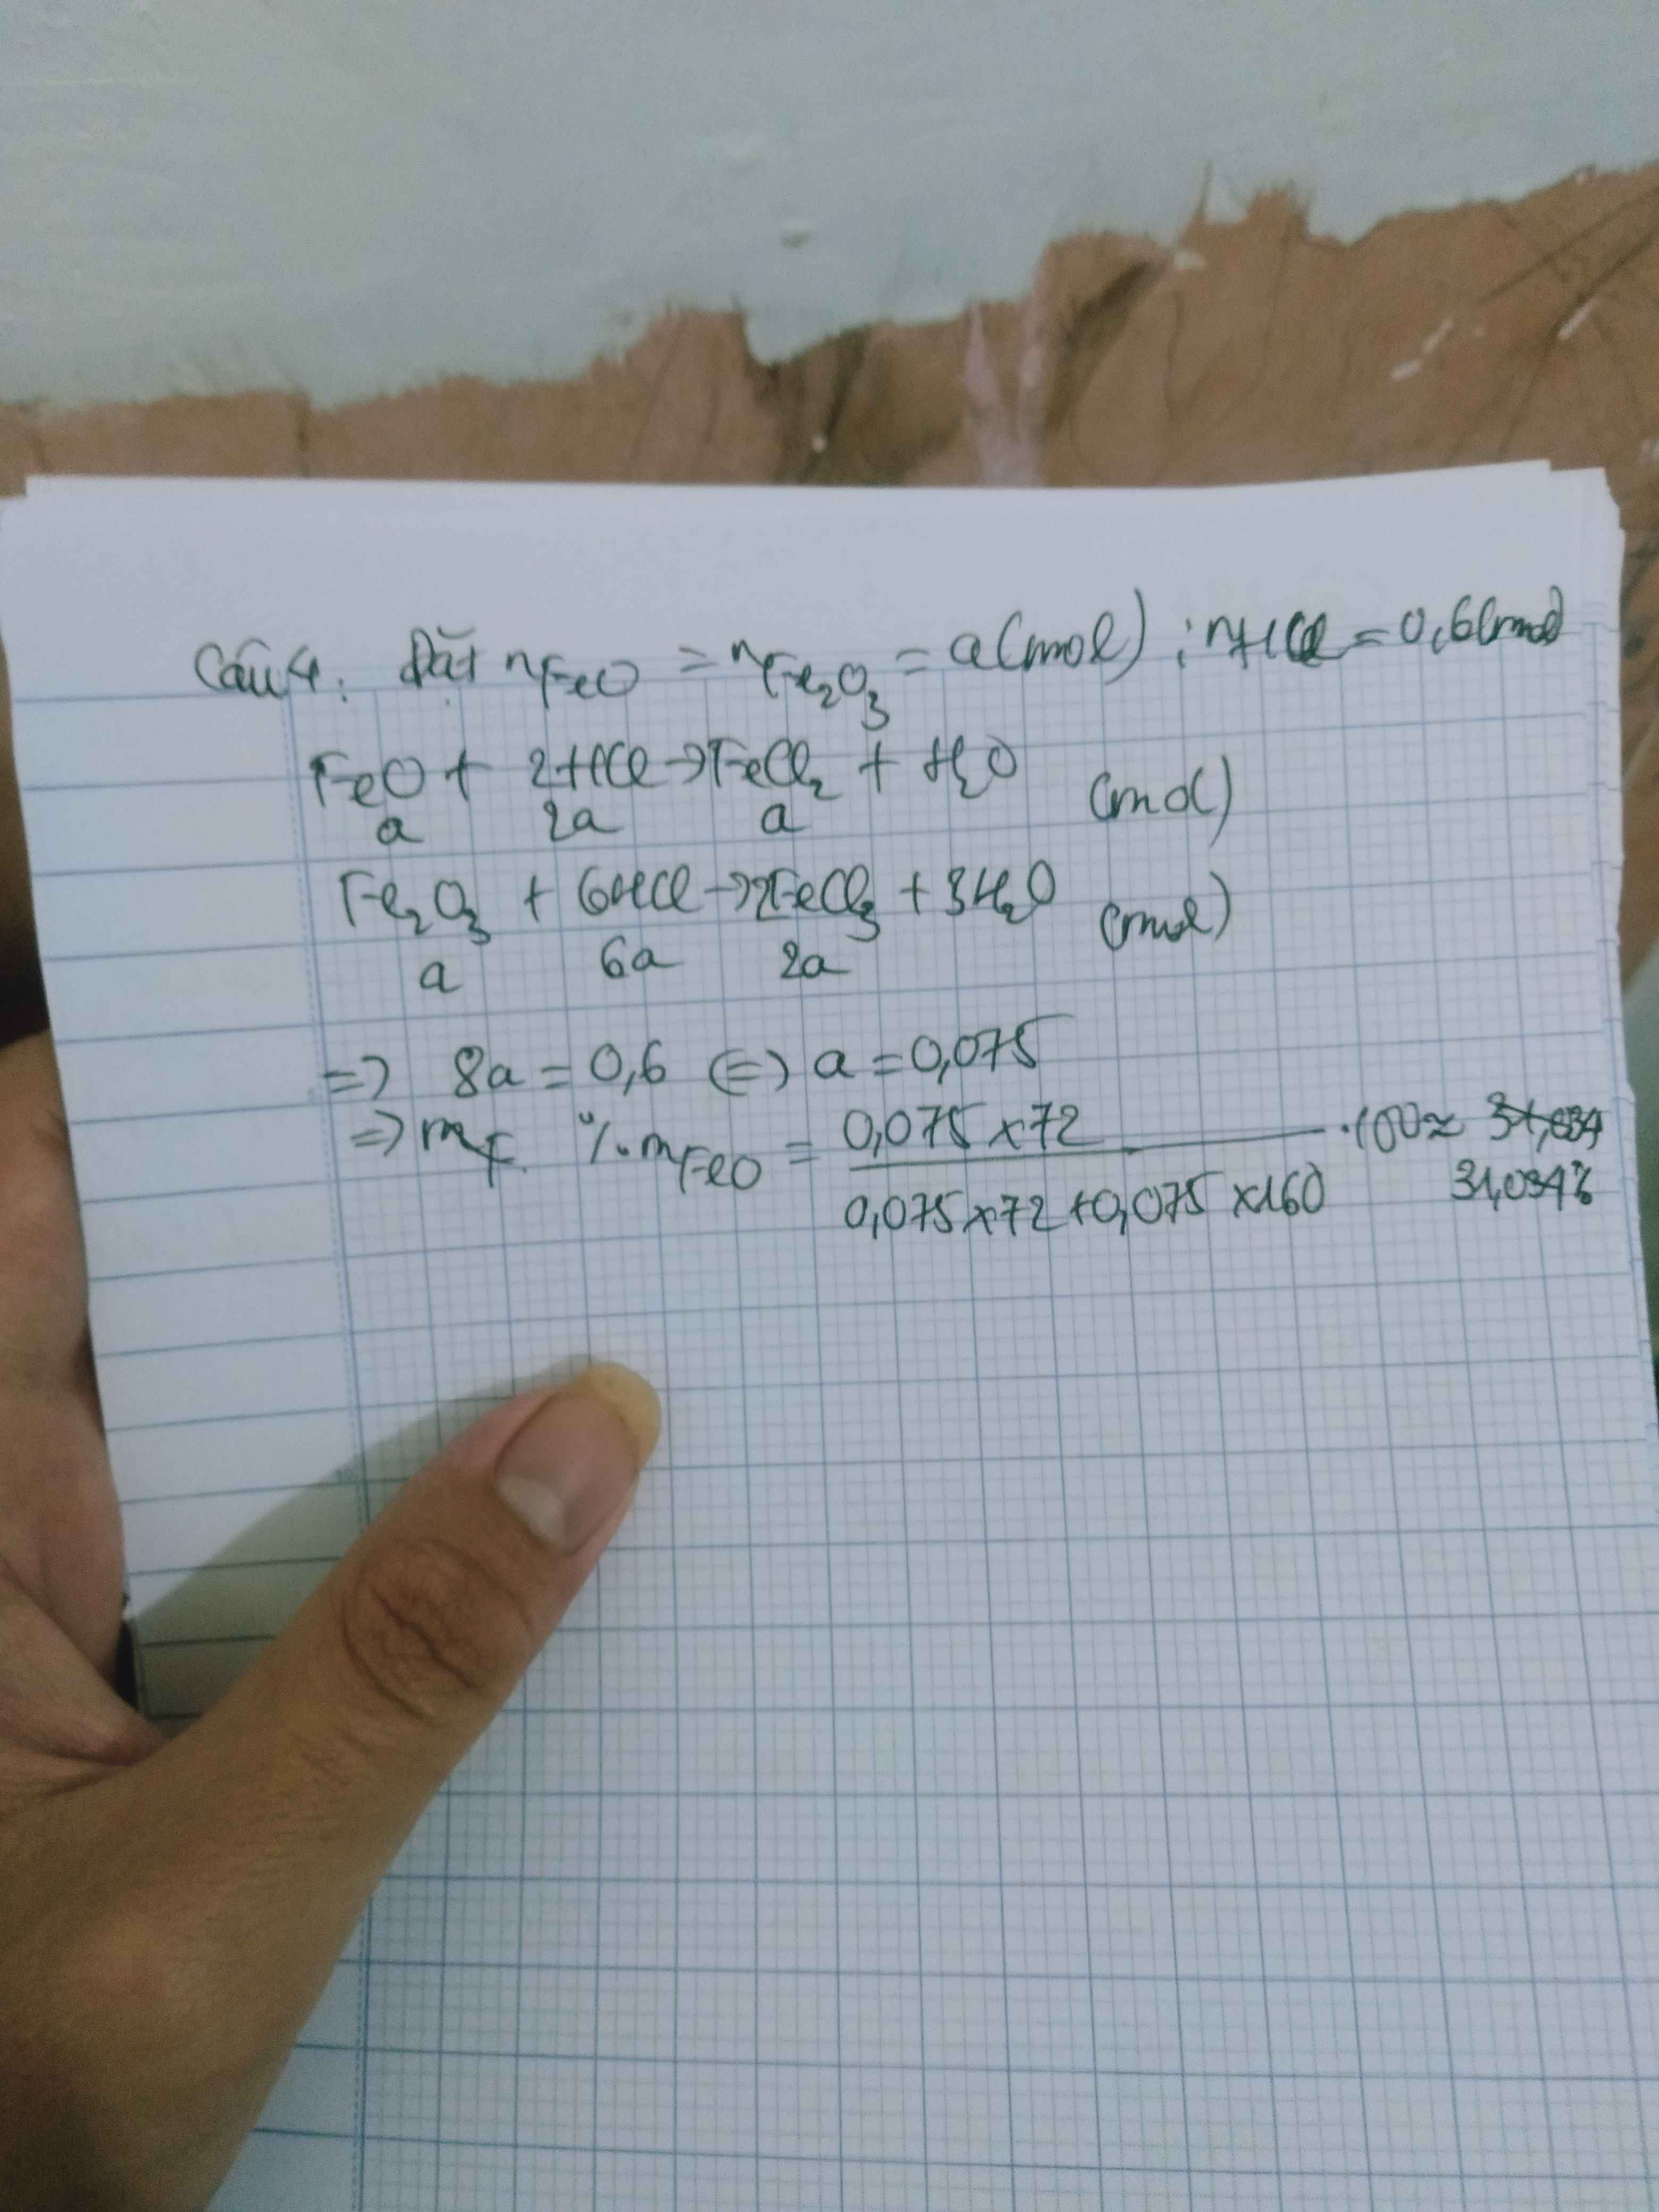 Câu 4: Đặt nFeO = nFe2O3 = a(mol) ; nHCl = 0,6(mol)
FeO + 2HCl → FeCl2 + H2O (mol)
a 2a a
Fe2O3 + 6HCl → 2FeCl3 + 3H2O (mol)
a 6a 2a
=> 8a = 0,6 (=) a = 0,075
=> mF %mFeO = 0,075 x 72 / 0,075 x 72 + 0,075 x 160 . 100 ≈ 31,034
31,034%